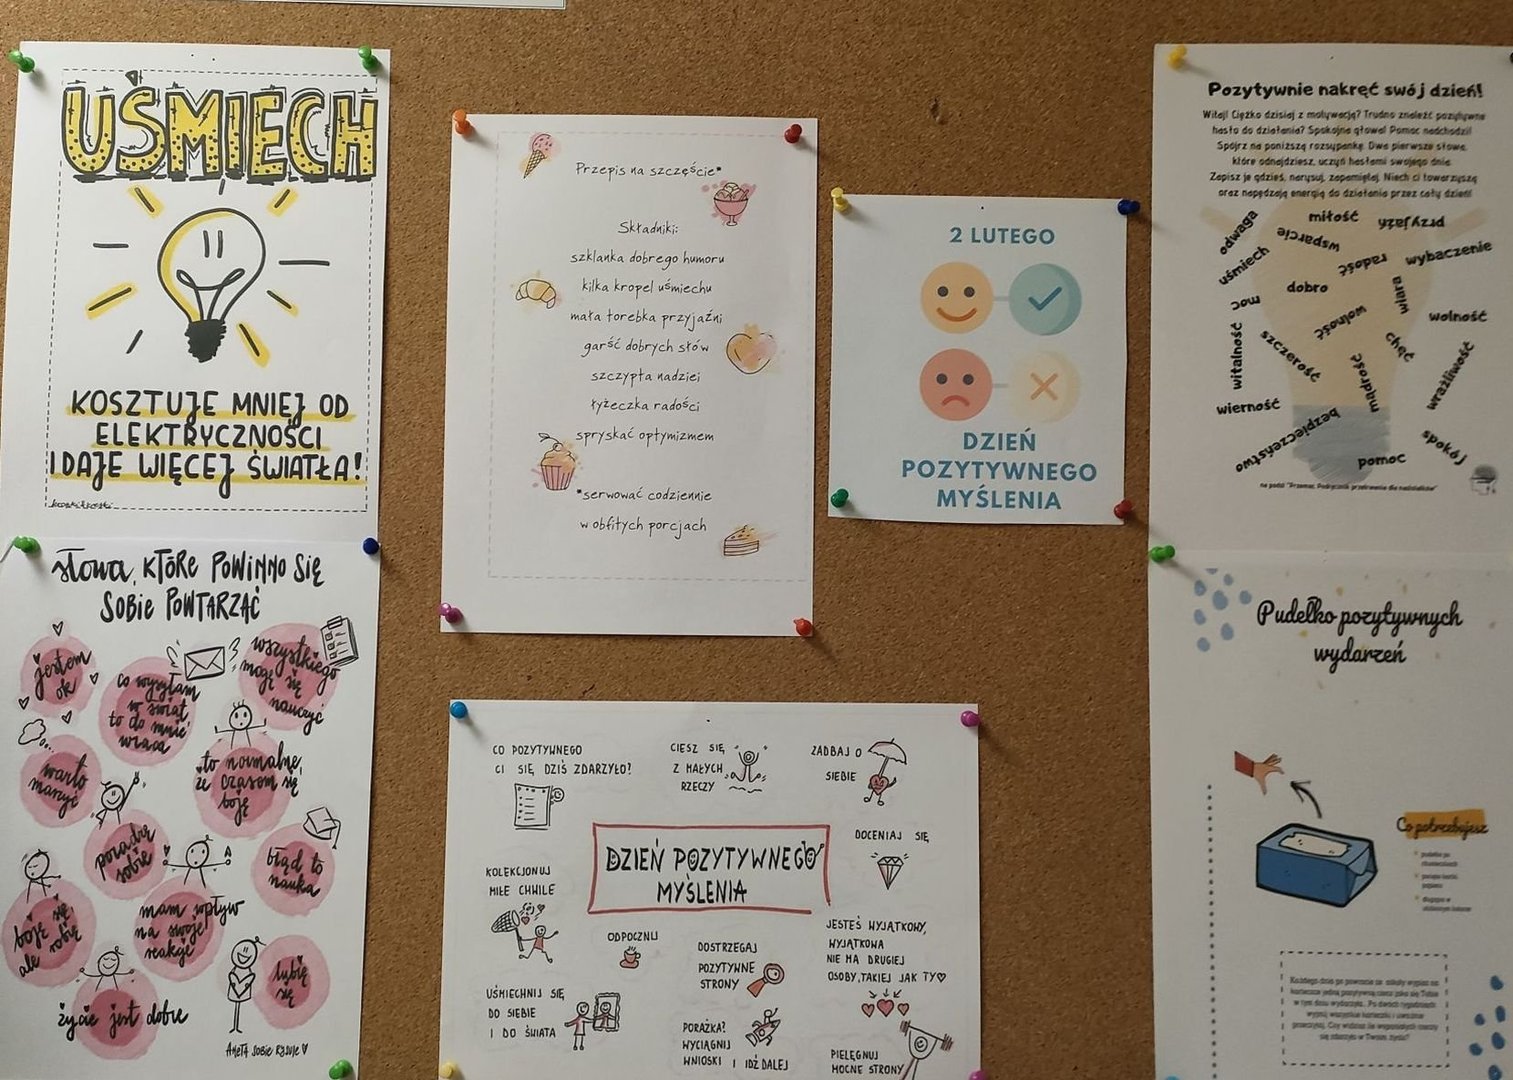 UŚMIECH
KOSZTUJE MNIEJ OD
ELEKTRYCZNOŚCI
I DAJE WIĘCEJ ŚWIATŁA!
słowa, KTÓRE POWINNO SIĘ
SOBIE POWTARZAĆ
jestem
ok
co wysyłam
w świat
to do mnie
wraca
wszystkiego
mogę się
nauczyć
warto
marzyć
to normalne,
że czasem się
boję
poradzę
sobie
błąd to
nauka
boję się,
ale robię
mam wpływ
na swoje
reakcje
lubię
się
życie jest dobre
ANETA SOBIE RYSUJE
Przepis na szczęście*
Składniki:
szklanka dobrego humoru
kilka kropel uśmiechu
mała torebka przyjaźni
garść dobrych słów
szczypta nadziei
łyżeczka radości
spryskać optymizmem
*serwować codziennie
w obfitych porcjach
2 LUTEGO
DZIEŃ
POZYTYWNEGO
MYŚLENIA
CO POZYTYWNEGO
CI SIĘ DZIŚ ZDARZYŁO?
CIESZ SIĘ
Z MAŁYCH
RZECZY
ZADBAJ O
SIEBIE
DZIEŃ POZYTYWNEGO
MYŚLENIA
DOCENIAJ SIĘ
KOLEKCJONUJ
MIŁE CHWILE
ODPOCZNIJ
DOSTRZEGAJ
POZYTYWNE
STRONY
JESTEŚ WYJĄTKOWY,
WYJĄTKOWA
NIE MA DRUGIEJ
OSOBY, TAKIEJ JAK TY
UŚMIECHNIJ SIĘ
DO SIEBIE
I DO ŚWIATA
PORAŻKA?
WYCIĄGNIJ
WNIOSKI I IDŹ DALEJ
PIELĘGNUJ
MOCNE STRONY
Pozytywnie nakręć swój dzień!
Witaj! Ciężko dzisiaj z motywacją? Trudno znaleźć pozytywne
hasło do działania? Spokojna głowa! Pomoc nadchodzi!
Spójrz na poniższą rozsypankę. Dwa pierwsze słowa,
które odnajdziesz, uczyń hasłami swojego dnia.
Zapisz je gdzieś, narysuj, zapamiętaj. Niech ci towarzyszą
oraz napędzają energią do działania przez cały dzień!
odwaga
miłość
przyjaźń
wsparcie
uśmiech
radość
wybaczenie
dobro
wiara
moc
wolność
wolność
witalność
szczerość
chęć
mądrość
wrażliwość
wierność
bezpieczeństwo
pomoc
spokój
na podst. "Przemoc. Podręcznik przetrwania dla nastolatków"
Pudełko pozytywnych
wydarzeń
Co potrzebujesz
pudełko po
chusteczkach
Każdego dnia po powrocie ze szkoły wypisz na
karteczce jedną pozytywną rzecz jaka się Tobie
w tym dniu wydarzyła. Po dwóch tygodniach
wyjmij wszystkie karteczki i uważnie
przeczytaj. Czy widzisz ile wspaniałych rzeczy
się zdarzyło w Twoim życiu?